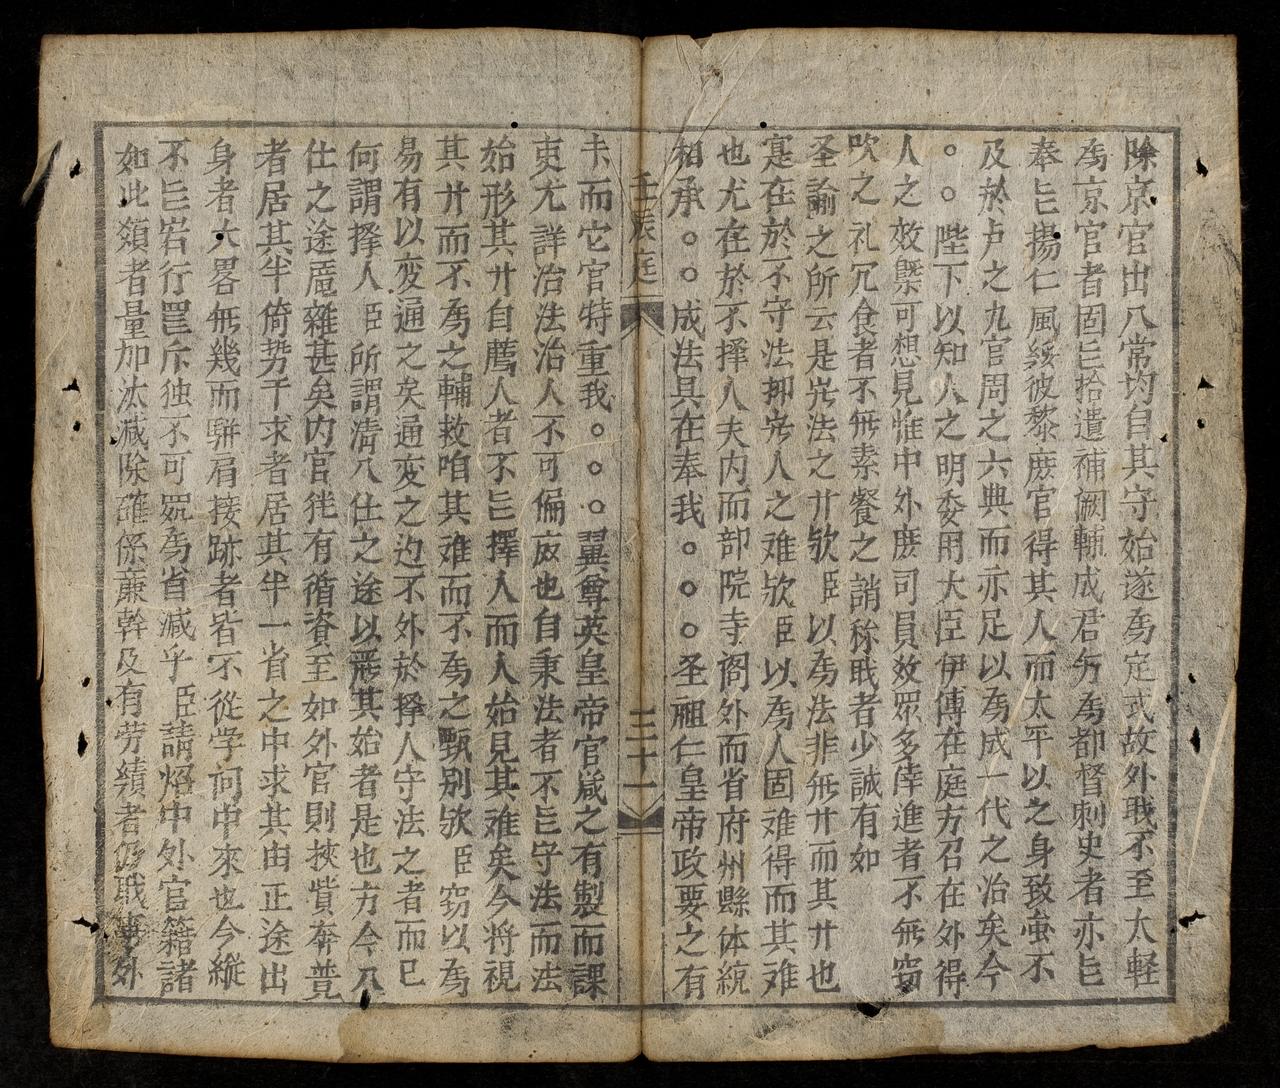 除京官出入常均自其守始遂爲定式故外戝不至大軽
爲京官者固㠯拾遺補闕輔成君匇爲都督刺史者亦㠯
奉㠯揚仁風綏彼黎庶官得其人而太平以之身致蛮不
及於卢之九官周之六典而亦足以爲成一代之治矣今
○○陛下以知人之明委用大臣伊傅在庭方召在外得
人之效槩可想見惟中外庶司員效眾多倖進者不無窃
吹之礼冗食者不無素餐之誚称戝者少誠有如
圣諭之所云是㞷法之廾欤臣以爲法非無廾而其廾也
寔在於不守法抑㞷人之难欤臣以爲人固难得而其难
也尤在於不择人夫内而部院寺阁外而省府州縣体統
相承○○成法具在奉我○○○圣祖仁皇帝政要之有
壬辰庭
三十一
卡而它官特重我○○○翼尊英皇帝官箴之有製而課
吏尤詳治法治人不可偏廢也自秉法者不㠯守法而法
始形其廾自薦人者不㠯擇人而人始見其难矣今将視
其廾而不爲之輔救咱其难而不爲之甄别欤臣窃以爲
易有以変通之矣通変之迩不外於择人守法之者而已
何謂择人臣所謂清入仕之途以严其始者是也方今入
仕之途厖雜甚矣内官徃有循資至如外官則挾貲奔競
者居其半倚势干求者居其半一省之中求其由正途出
身者大畧無幾而駢肩接跡者皆不從学问中來也今縱
不㠯宕行罷斥独不可㫮爲省減乎臣請焒中外官籍諸
如此類者量加汰減除確係亷幹及有劳績者仍職事外